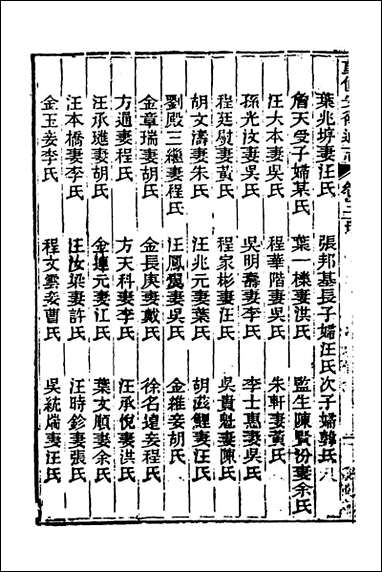 重修安徽通志
葉兆妻汪氏 張邦基長子婦汪氏次子婦韓氏
詹天受子婦某氏 葉一櫟妻洪氏 監生陳賢份妻余氏
汪大本妻吳氏 程華階妻吳氏 朱軒妻黃氏
孫光汝妻吳氏 吳明壽妻李氏 李士惠妻吳氏
程廷熨妻黃氏 程家彬妻汪氏 吳貴魁妻陳氏
胡文濤妻朱氏 汪兆元妻葉氏 胡滋鯉妻汪氏
劉殿三繼妻程氏 汪鳳翼妻吳氏 金維妾胡氏
金章瑞妻胡氏 金長庚妻戴氏 徐名堭妾程氏
方過妻程氏 方天科妻李氏 汪承悅妻洪氏
汪承進妻胡氏 金元妻江氏 葉文順妻余氏
汪本橋妻李氏 汪汝梁妻許氏 汪時鉁妻張氏
金玉妾李氏 程文妾曹氏 吳統妻汪氏